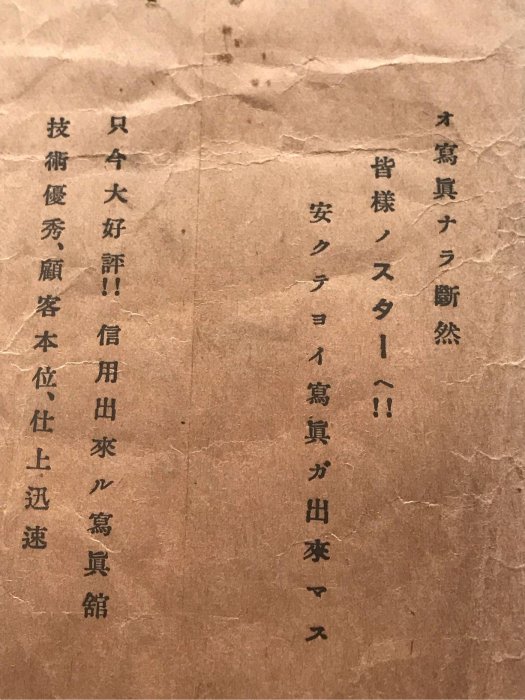 オ寫眞ナラ斷然
皆樣ノスターヘ!!
安クテヨイ寫眞ガ出來マス
只今大好評!! 信用出來ル寫眞舘
技術優秀、顧客本位、仕上迅速